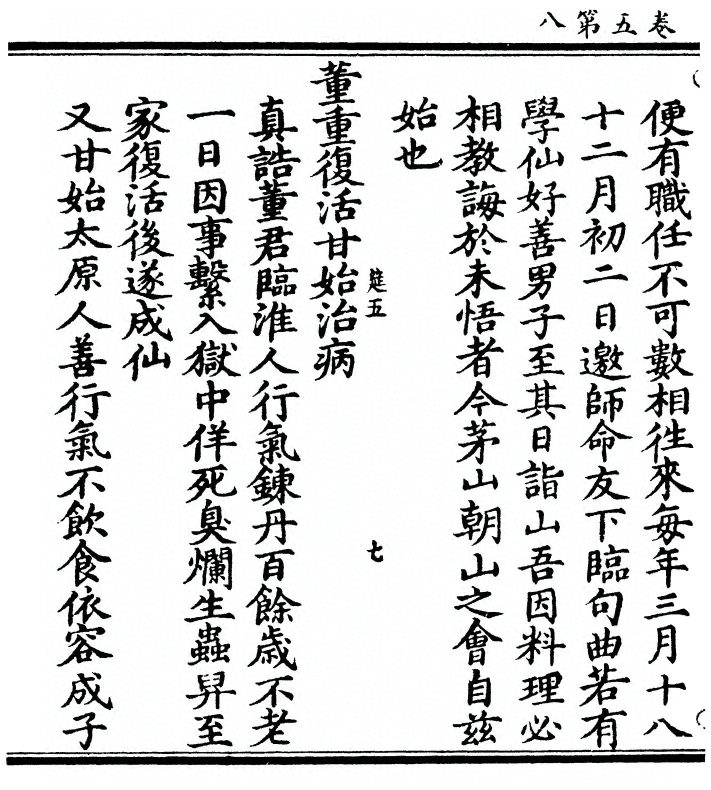 卷五第八
便有職任不可數相往來每年三月十八
十二月初二日邀師命友下臨句曲若有
學仙好善男子至其日詣山吾因料理必
相教誨於未悟者今茅山朝山之會自兹
始也
筵五
七
董重復活甘始治病
真誥董君臨淮人行氣鍊丹百餘歳不老
一日因事繫入獄中佯死臭爛生蟲舁至
家復活後遂成仙
又甘始太原人善行氣不飲食依容成子